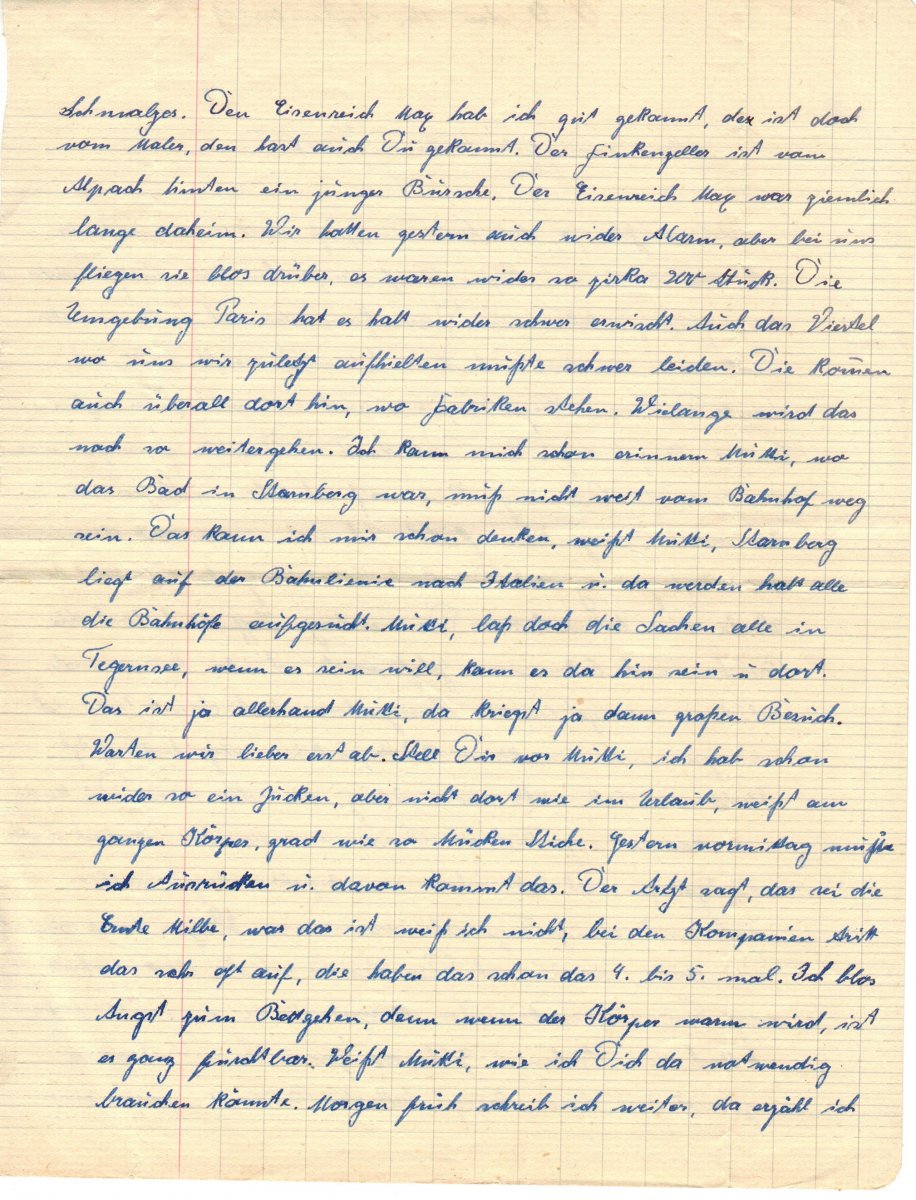 Schmalzes. Den Eisenreich Max hab ich gut gekannt, der ist doch
vom Maler, den hast auch Du gekannt. Der Finkenzeller ist vom
Alpach hinten ein junger Bursche. Der Eisenreich Max war ziemlich
lange daheim. Wir hatten gestern auch wider Alarm, aber bei uns
fliegen sie blos drüber, es waren wider so zirka 200 Stück. Die
Umgebung Paris hat es halt wider schwer erwischt. Auch das Viertel
wo uns wir zuletzt aufhielten mußte schwer leiden. Die kom̄en
auch überall dort hin, wo Fabriken stehen. Wielange wird das
noch so weitergehen. Ich kann mich schon erinnern Mutti, wo
das Bad in Starnberg war, muß nicht weit vom Bahnhof weg
sein. Das kann ich mir schon denken, weißt Mutti, Starnberg
liegt auf der Bahnlienie nach Italien u. da werden halt alle
die Bahnhöfe aufgesucht. Mutti, laß doch die Sachen alle in
Tegernsee, wenn es sein will, kann es da hin sein u dort.
Das ist ja allerhand Mutti, da kriegst ja dann großen Besuch.
Warten wir lieber erst ab. Stell Dir vor Mutti, ich hab schon
wider so ein Jucken, aber nicht dort wie im Urlaub, weißt am
ganzen Körper, grad wie so Mücken Stiche. Gestern vormittag mußte
ich Ausrücken u. davon kommt das. Der Artzt sagt, das sei die
Ernte Milbe, was das ist weiß ich nicht, bei den Kompanien tritt
das sehr oft auf, die haben das schon das 4. bis 5. mal. Ich blos
Angst zum Bettgehen, denn wenn der Körper warm wird, ist
es ganz furchtbar. Weißt Mutti, wie ich Dich da notwendig
brauchen könnte. Morgen früh schreib ich weiter, da erzähl ich